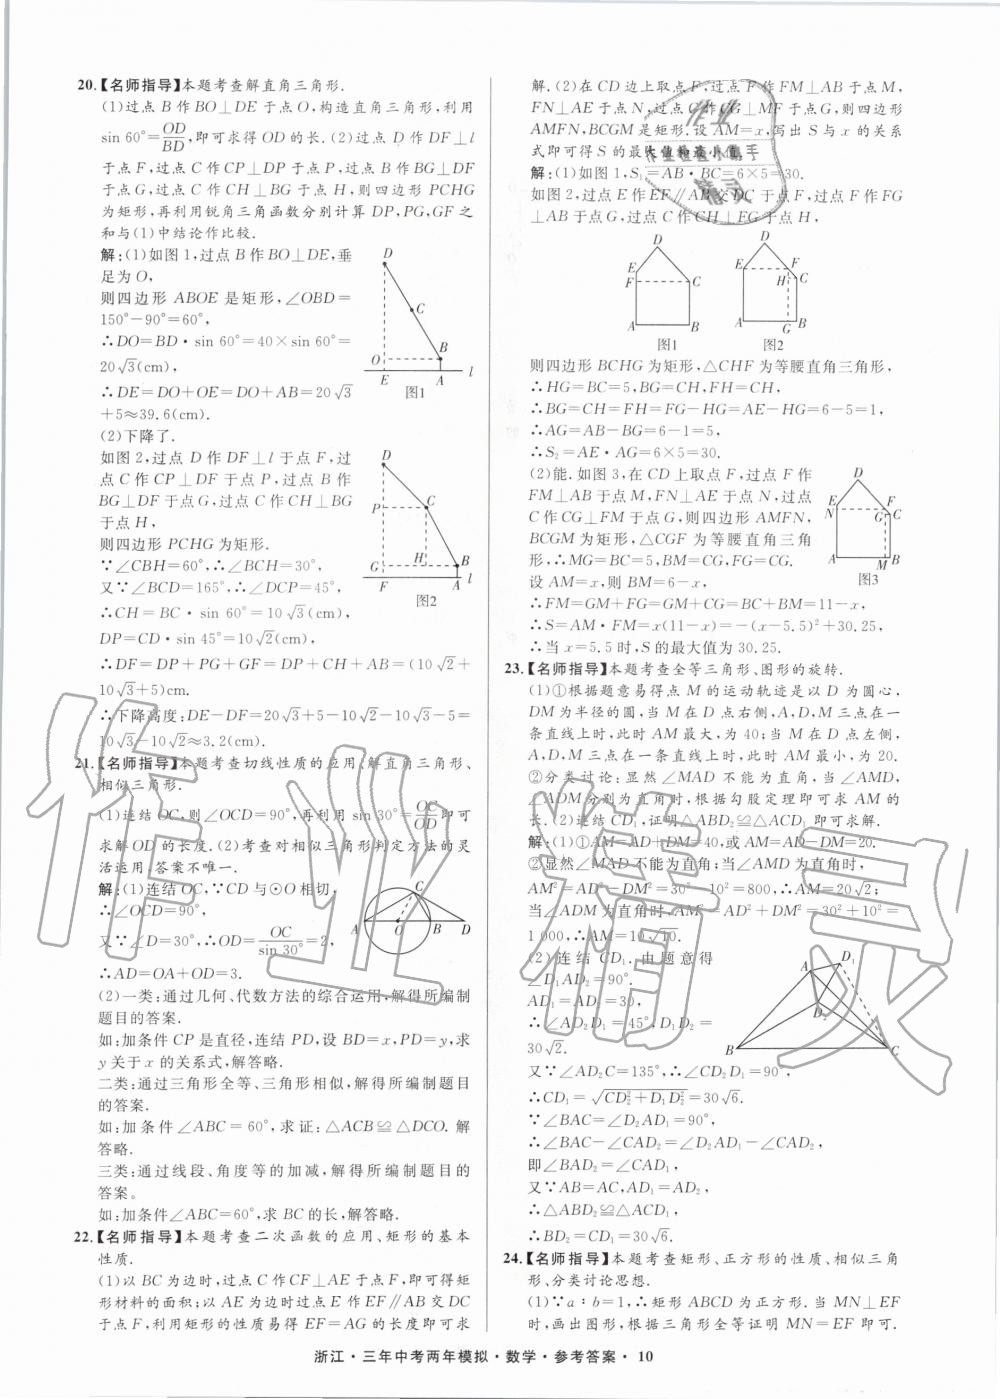 20.【名师指导】本题考查解直角三角形.
(1)过点B作BO⊥DE于点O,构造直角三角形,利用
sin 60°=OD/BD,即可求得OD的长.(2)过点D作DF⊥l
于点F,过点C作CP⊥DP于点P,过点B作BG⊥DF
于点G,过点C作CH⊥BG于点H,则四边形PCHG
为矩形,再利用锐角三角函数分别计算DP,PG,GF之
和与(1)中结论作比较.
解:(1)如图1,过点B作BO⊥DE,垂
足为O,
则四边形ABOE是矩形,∠OBD=
150°-90°=60°,
∴DO=BD·sin 60°=40×sin 60°=
20√3(cm),
∴DE=DO+OE=DO+AB=20√3
+5≈39.6(cm).
D
C
O
B
E
A
l
图1
(2)下降了.
如图2,过点D作DF⊥l于点F,过
点C作CP⊥DF于点P,过点B作
BG⊥DF于点G,过点C作CH⊥BG
于点H,
则四边形PCHG为矩形.
∵∠CBH=60°,∴∠BCH=30°,
又∵∠BCD=165°,∴∠DCP=45°,
∴CH=BC·sin 60°=10√3(cm),
DP=CD·sin 45°=10√2(cm),
∴DF=DP+PG+GF=DP+CH+AB=(10√2+
10√3+5)cm.
∴下降高度:DE-DF=20√3+5-10√2-10√3-5=
10√3-10√2≈3.2(cm).
D
P
C
G
H
B
F
A
l
图2
21.【名师指导】本题考查切线性质的应用、解直角三角形、
相似三角形.
(1)连结OC,则∠OCD=90°,再利用sin 30°=OC/OD即可
求解OD的长度.(2)考查对相似三角形判定方法的灵
活运用,答案不唯一.
解:(1)连结OC,∵CD与⊙O相切,
∴∠OCD=90°,
又∵∠D=30°,∴OD=OC/sin 30°=2,
∴AD=OA+OD=3.
C
A
O
B
D
(2)一类:通过几何、代数方法的综合运用,解得所编制
题目的答案.
如:加条件CP是直径,连结PD,设BD=x,PD=y,求
y关于x的关系式,解答略.
二类:通过三角形全等、三角形相似,解得所编制题目
的答案.
如:加条件∠ABC=60°,求证:△ACB≌△DCO.解
答略.
三类:通过线段、角度等的加减,解得所编制题目的
答案。
如:加条件∠ABC=60°,求BC的长,解答略.
22.【名师指导】本题考查二次函数的应用、矩形的基本
性质.
(1)以BC为边时,过点C作CF⊥AE于点F,即可得矩
形材料的面积;以AE为边时过点E作EF∥AB交DC
于点F,利用矩形的性质易得EF=AG的长度即可求
解.(2)在CD边上取点F,过点F作FM⊥AB于点M,
FN⊥AE于点N,过点C作CG⊥MF于点G,则四边形
AMFN,BCGM是矩形.设AM=x,写出S与x的关系
式即可得S的最大值和最小值.
解:(1)如图1,S₁=AB·BC=6×5=30.
如图2,过点E作EF∥AB交DC于点F,过点F作FG
⊥AB于点G,过点C作CH⊥FG于点H,
D
E
F
C
A
B
图1
D
E
F
H
C
A
G
B
图2
则四边形BCHG为矩形,△CHF为等腰直角三角形,
∴HG=BC=5,BG=CH,FH=CH,
∴BG=CH=FH=FG-HG=AE-HG=6-5=1,
∴AG=AB-BG=6-1=5,
∴S₂=AE·AG=6×5=30.
(2)能.如图3,在CD上取点F,过点F作
FM⊥AB于点M,FN⊥AE于点N,过点
C作CG⊥FM于点G,则四边形AMFN,
BCGM为矩形,△CGF为等腰直角三角
形,∴MG=BC=5,BM=CG,FG=CG.
设AM=x,则BM=6-x,
∴FM=GM+FG=GM+CG=BC+BM=11-x,
∴S=AM·FM=x(11-x)=-(x-5.5)²+30.25,
∴当x=5.5时,S的最大值为30.25.
D
E
N
F
G
C
A
M
B
图3
23.【名师指导】本题考查全等三角形、图形的旋转.
(1)①根据题意易得点M的运动轨迹是以D为圆心,
DM为半径的圆,当M在D点右侧,A,D,M三点在一
条直线上时,此时AM最大,为40;当M在D点左侧,
A,D,M三点在一条直线上时,此时AM最小,为20.
②分类讨论:显然∠MAD不能为直角,当∠AMD,
∠ADM分别为直角时,根据勾股定理即可求AM的
长.(2)连结CD₁,证明△ABD₂≌△ACD₁即可求解.
解:(1)①AM=AD+DM=40,或AM=AD-DM=20.
②显然∠MAD不能为直角;当∠AMD为直角时,
AM²=AD²-DM²=30²-10²=800,∴AM=20√2;
当∠ADM为直角时,AM²=AD²+DM²=30²+10²=
1 000,∴AM=10√10.
(2)连结CD₁.由题意得
∠D₁AD₂=90°,
AD₁=AD₂=30,
∴∠AD₂D₁=45°,D₁D₂=
30√2.
A
D₁
D₂
B
C
又∵∠AD₂C=135°,∴∠CD₂D₁=90°,
∴CD₁=√CD₂²+D₁D₂²=30√6.
∵∠BAC=∠D₂AD₁=90°,
∴∠BAC-∠CAD₂=∠D₂AD₁-∠CAD₂,
即∠BAD₂=∠CAD₁,
又∵AB=AC,AD₁=AD₂,
∴△ABD₂≌△ACD₁,
∴BD₂=CD₁=30√6.
24.【名师指导】本题考查矩形、正方形的性质、相似三角
形、分类讨论思想.
(1)∵a∶b=1,∴矩形ABCD为正方形.当MN⊥EF
时,画出图形,根据三角形全等证明MN=EF即可.
浙江·三年中考两年模拟·数学·参考答案·10
作业精灵